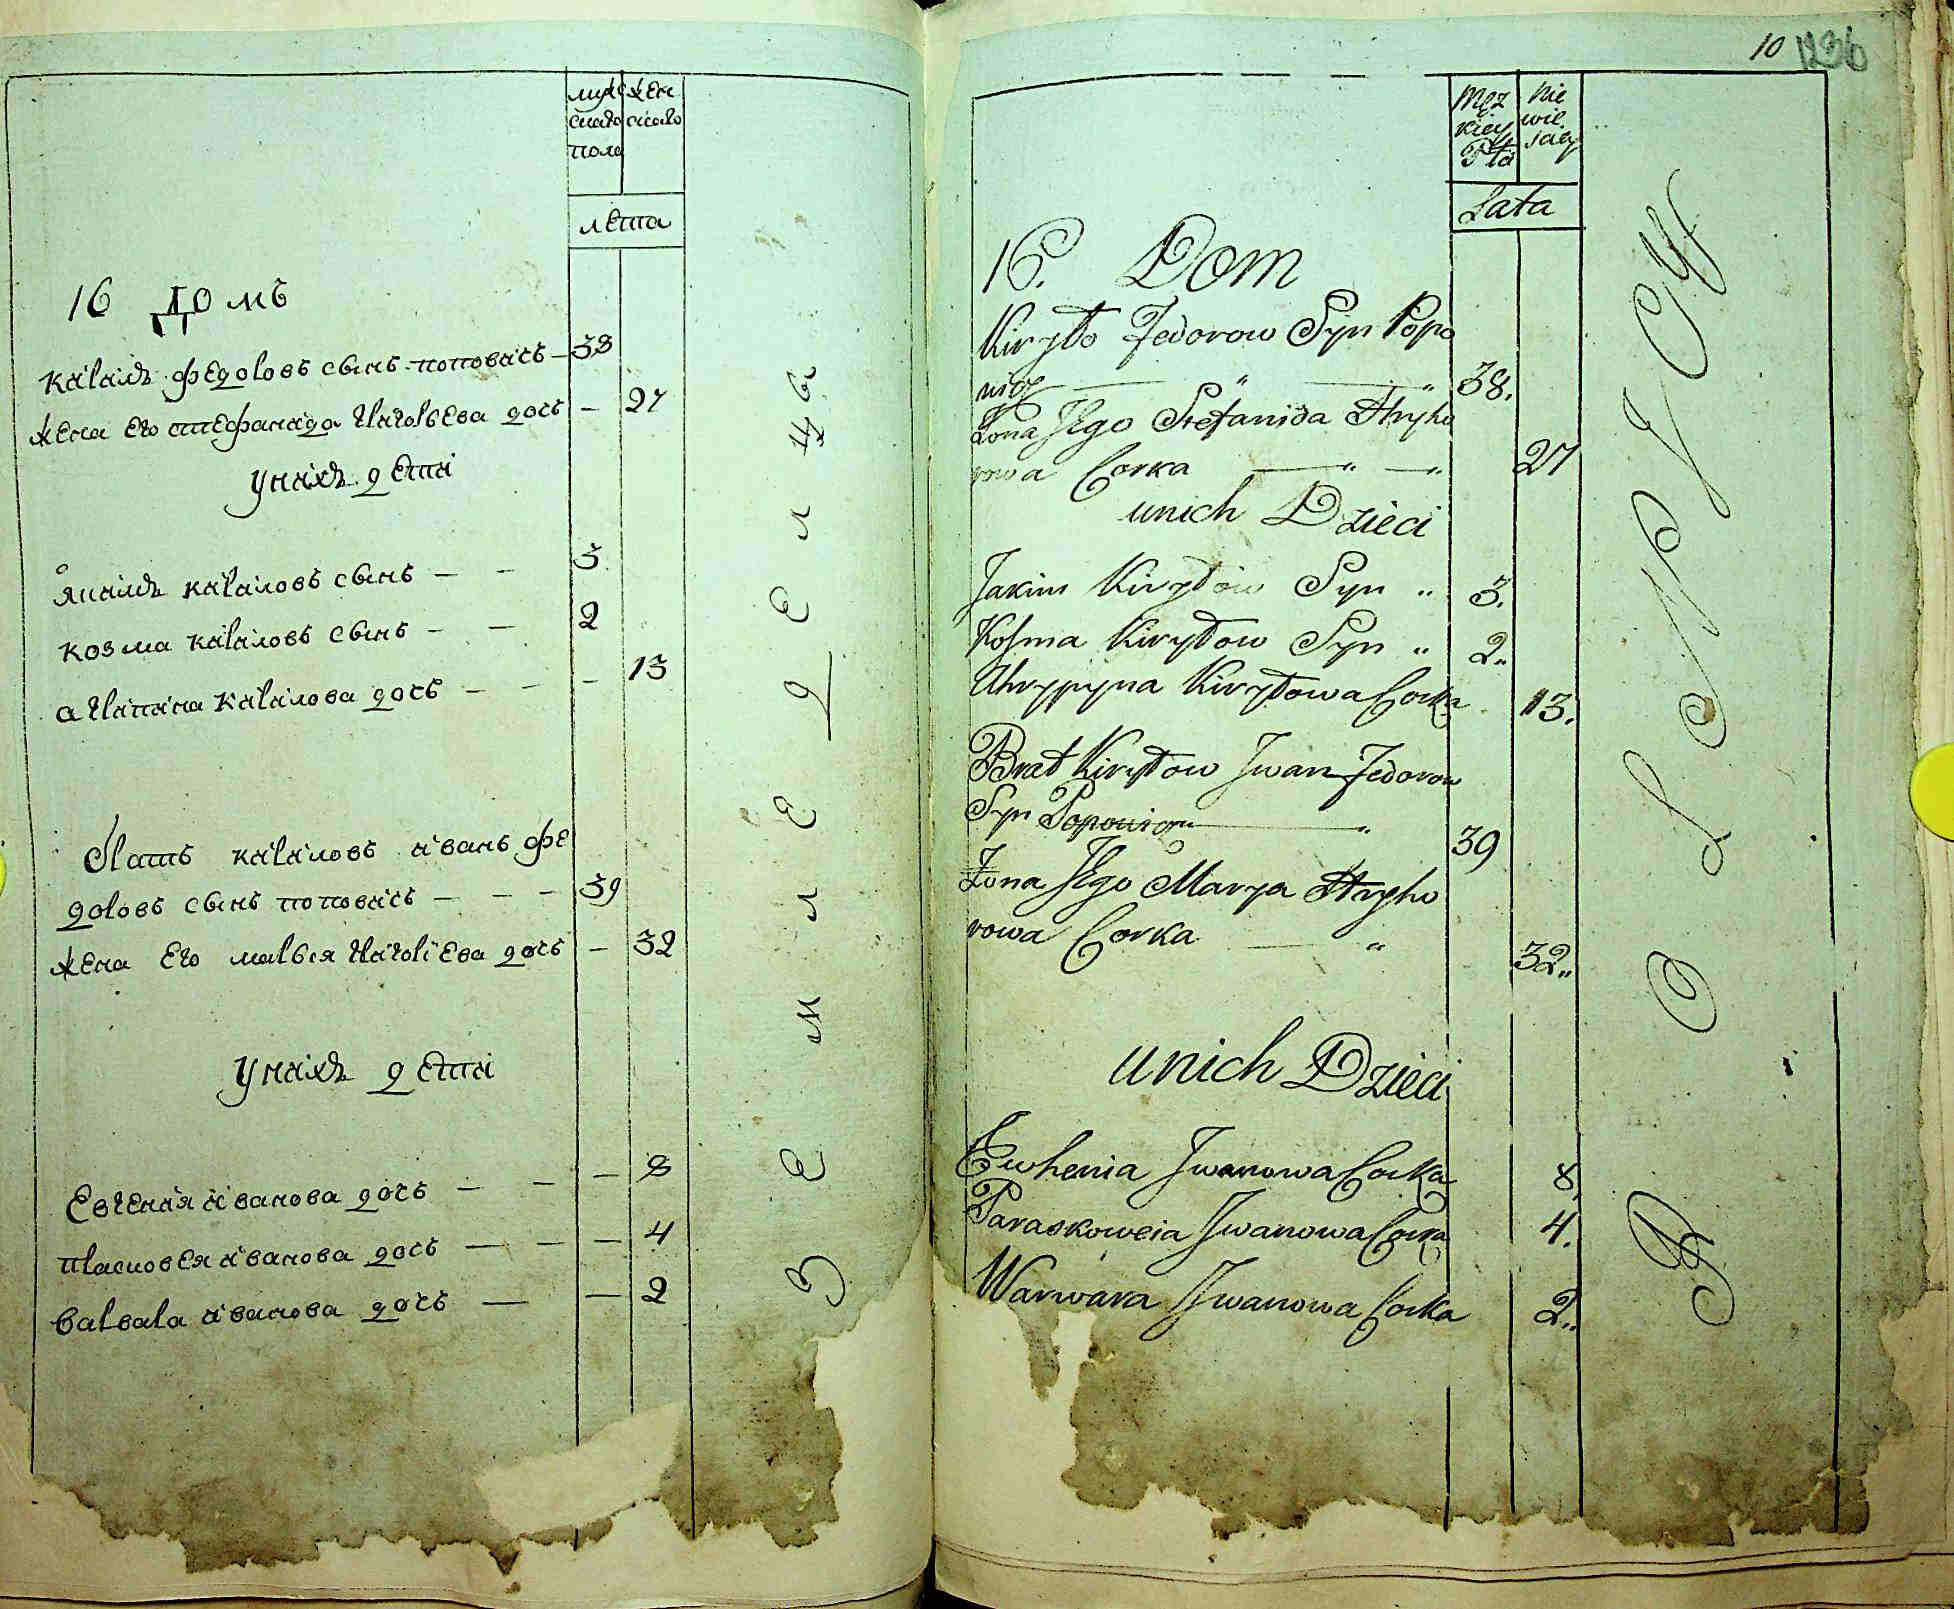 мужескаго полу
женскаго
лета
16 домъ
кирилъ федоровъ сынъ поповичъ — 38
жена его стефанида григорьева дочь — 27
у нихъ дети
якимъ кириловъ сынъ — — 3
козма кириловъ сынъ — — 2
агрипина кирилова дочь — — — 13
братъ кириловъ иванъ фе
доровъ сынъ поповичъ — — — 39
жена его марья григориева дочь — 32
у нихъ дети
Евгения иванова дочь — — — 8
прасковея иванова дочь — — — 4
варвара иванова дочь — — 2
земледелцы
10 126
Męz
kiey
Płci
Nie
wie
sciey
Lata
16. Dom
Kiryło Fedorow Syn Popo
wicz — " — " 38.
Żona Jego Stefanida Hryho
rowa Corka — " — " 27
unich Dzieci
Jakim Kiryłow Syn " 3.
Kosma Kiryłow Syn " 2"
Uhrypyna Kiryłowa Corka 13.
Brat Kiryłow Jwan Fedorow
Syn Popowicz — " 39
Żona Jego Marya Hryho
rowa Corka — " 32"
unich Dzieci
Ewhenia Jwanowa Corka 8,
Paraskoweia Jwanowa Corka 4.
Warwara Jwanowa Corka 2"
ROLNICY